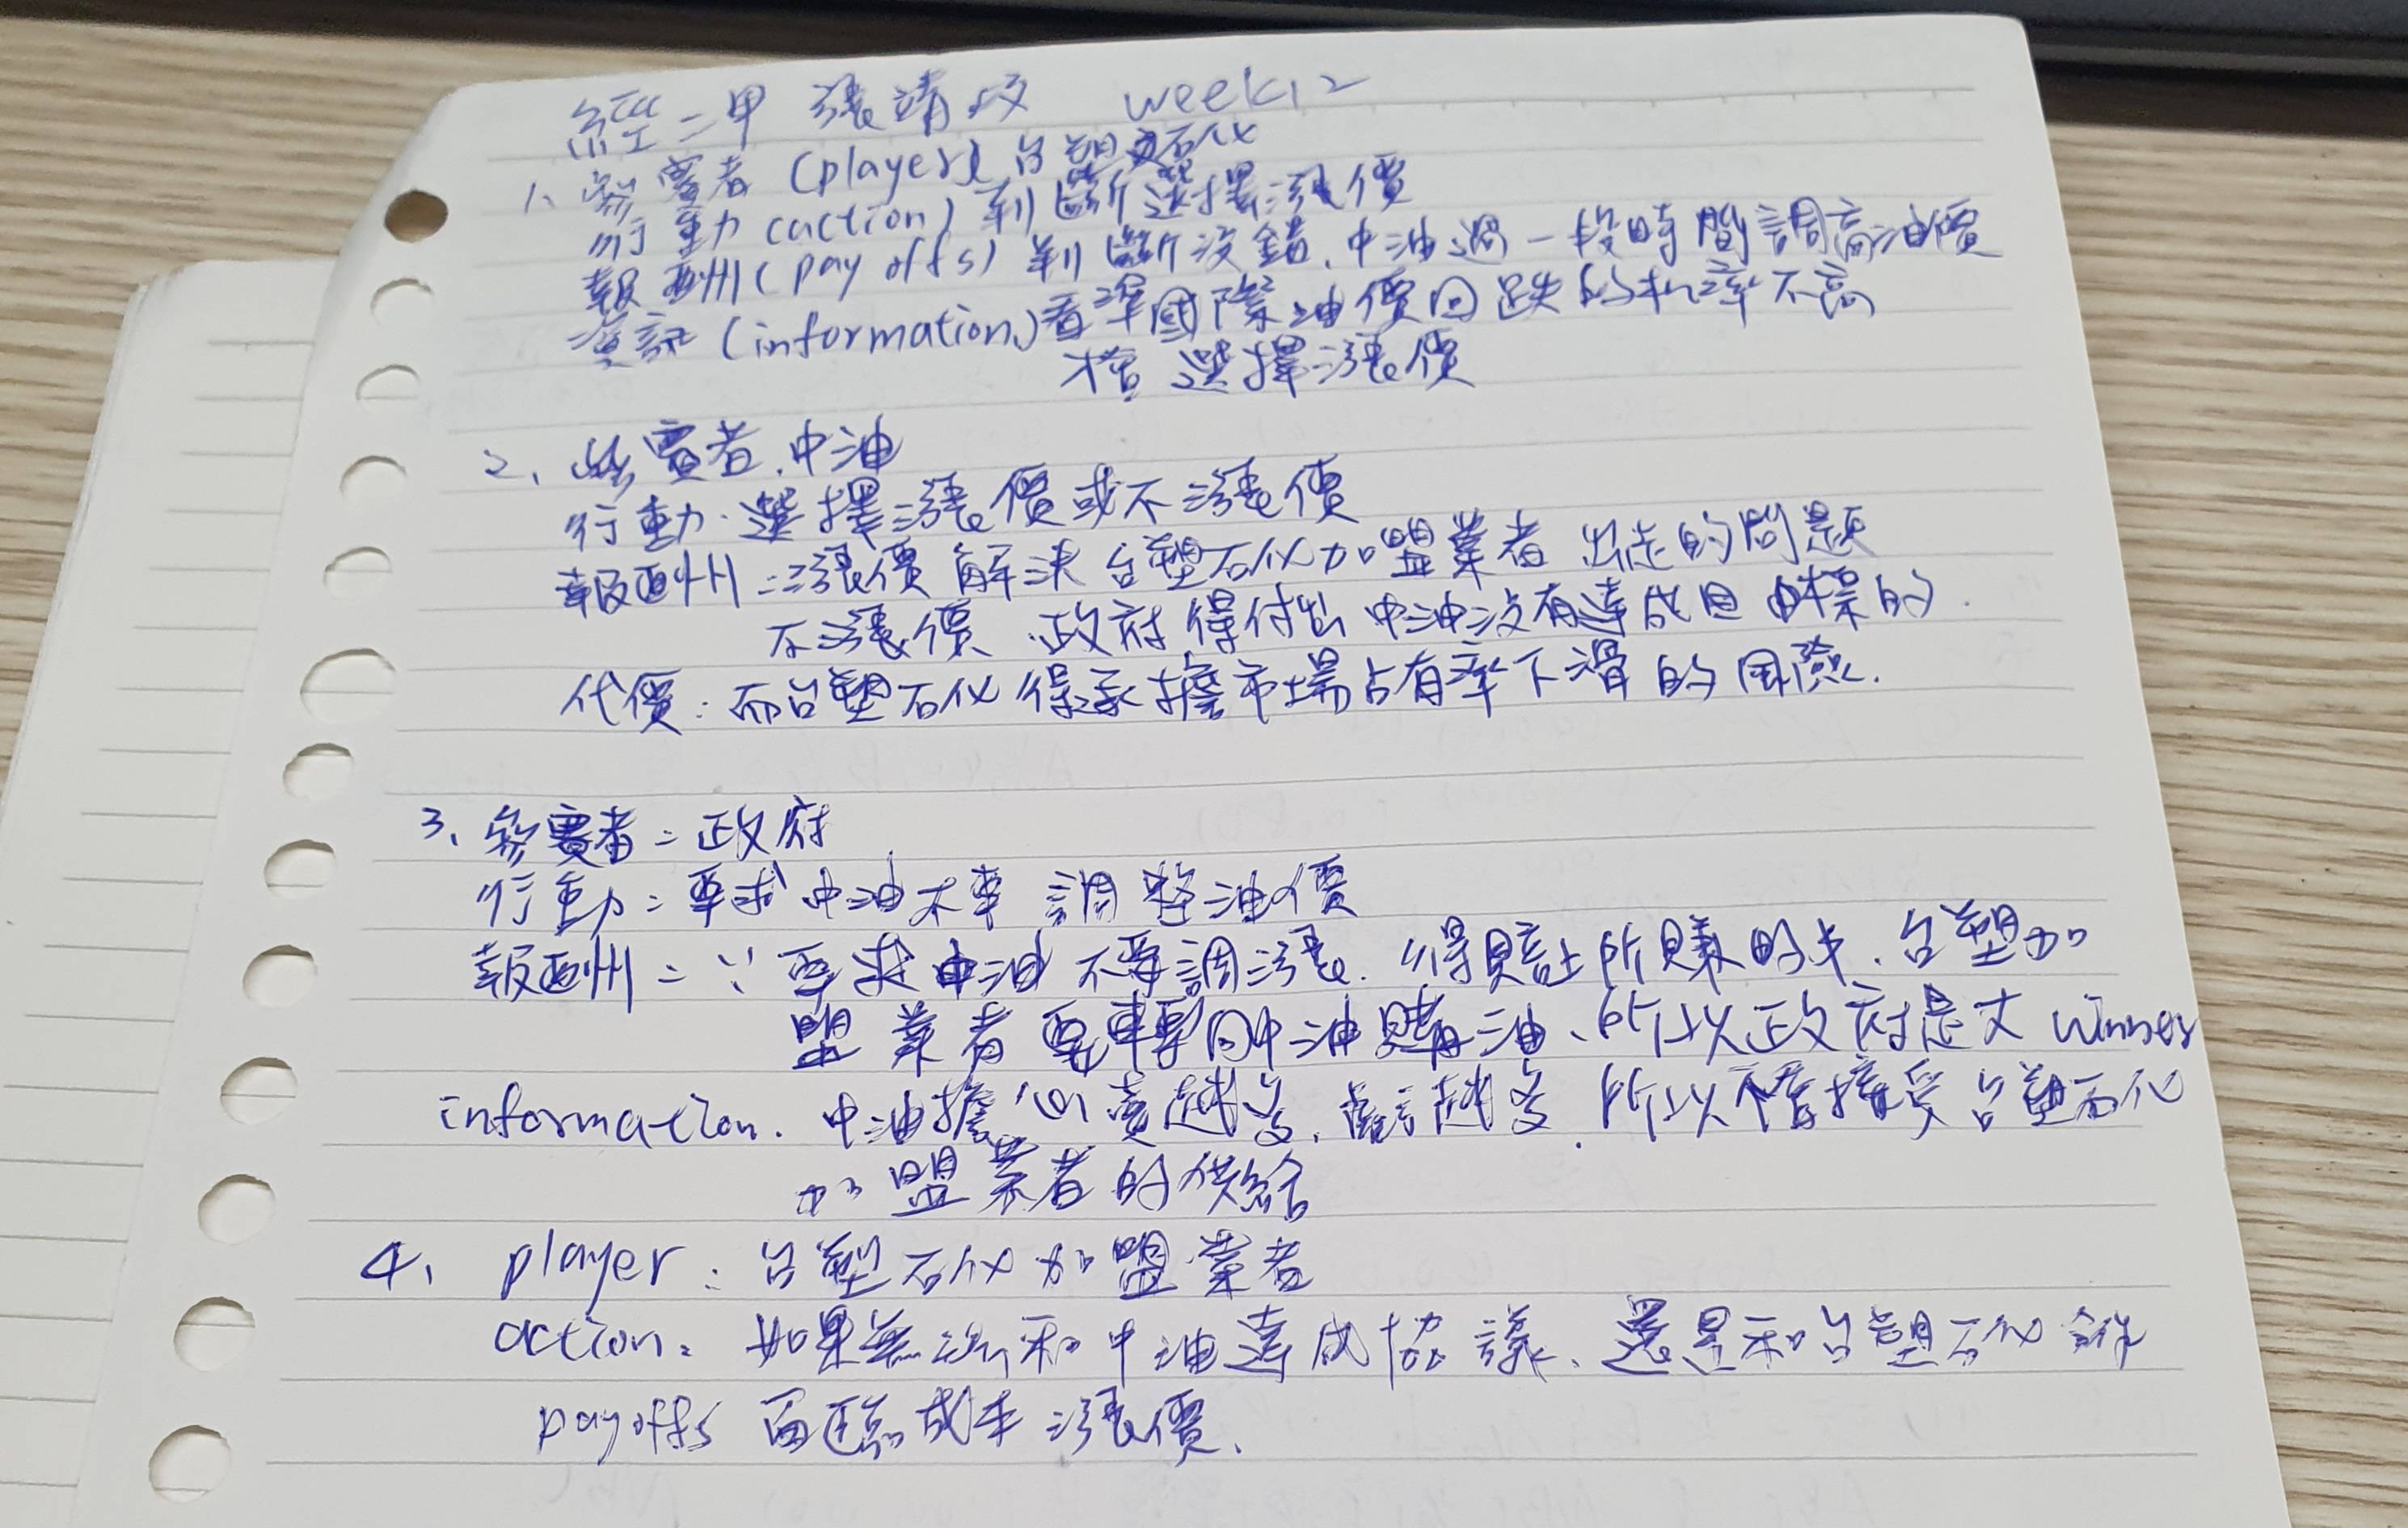 經二甲 張靖 week12
1、參賽者(player) 台塑石化
行動(action) 判斷選擇漲價
報酬(payoffs) 判斷沒錯、中油過一段時間調高油價
資訊(information) 看準國際油價回跌的机率不高
才會選擇漲價
2、參賽者、中油
行動:選擇漲價或不漲價
報酬:漲價解決台塑石化加盟業者出走的問題
不漲價、政府得付出中油沒有達成目標的
代價:而台塑石化得承擔市場占有率下滑的風險.
3、參賽者:政府
行動:要求中油不要調整油價
報酬:∵要求中油不要調漲、得賠所賺的、台塑加
盟業者要轉向中油購油、所以政府是大winner
information、中油擔心賣越多、虧越多、所以不會接受台塑石化
加盟業者的供給
4、player:台塑石化加盟業者
action:如果無法和中油達成協議、還是和台塑石化合作
payoffs 面臨成本漲價、